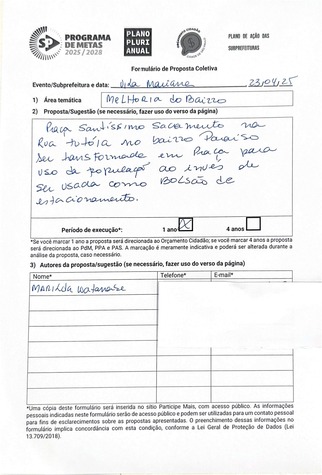 PROGRAMA
DE METAS
2025 / 2028
PLANO
PLURI
ANUAL
PLANO DE AÇÃO DAS
SUBPREFEITURAS
Formulário de Proposta Coletiva
Evento/Subprefeitura e data: Vila Mariana 23/04/25
1) Área temática MELHORIA do BAIRRO
2) Proposta/Sugestão (se necessário, fazer uso do verso da página)
Praça Santíssimo Sacramento na
Rua tutóia no bairro Paraíso
ser transformada em Praça para
uso da população ao invés de
ser usada como BOLSÃO de
estacionamento.
Período de execução*: 1 ano X 4 anos
*Se você marcar 1 ano a proposta será direcionada ao Orçamento Cidadão; se você marcar 4 anos a proposta
será direcionada ao PdM, PPA e PAS. A marcação é meramente indicativa e poderá ser alterada durante a
análise da proposta, caso necessário.
3) Autores da proposta/sugestão (se necessário, fazer uso do verso da página)
Nome* Telefone* E-mail*
MARILDA Watanabe
*Uma cópia deste formulário será inserida no sítio Participe Mais, com acesso público. As informações
pessoais indicadas neste formulário serão de acesso público e podem ser utilizadas para um contato pessoal
para fins de esclarecimentos sobre as propostas apresentadas. O preenchimento dessas informações no
formulário implica concordância com esta condição, conforme a Lei Geral de Proteção de Dados (Lei
13.709/2018).